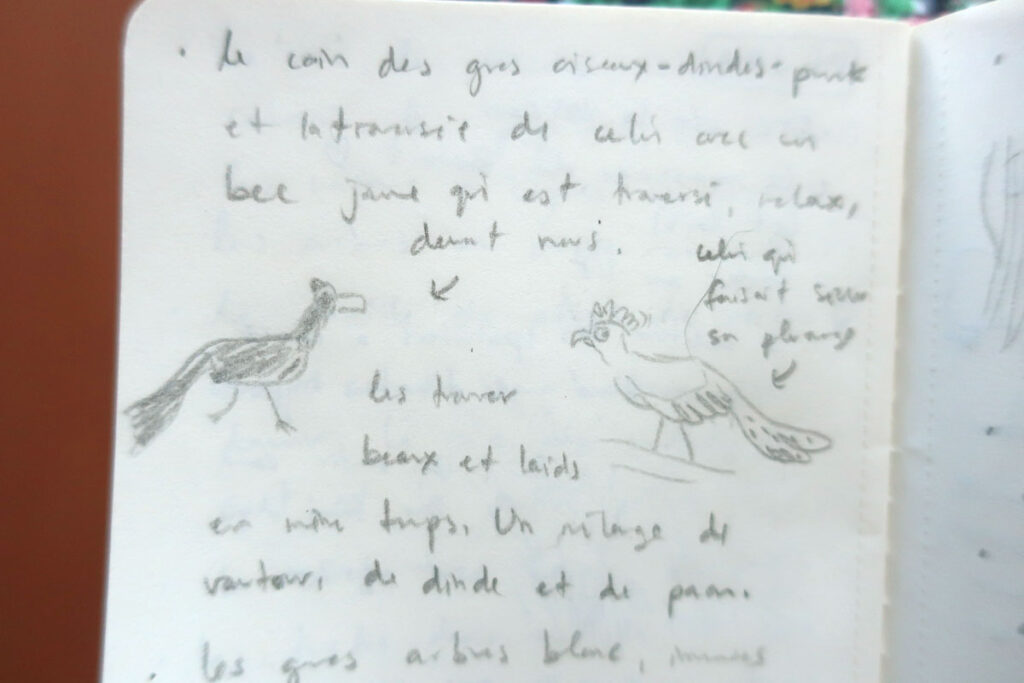 • Le coin des gros oiseaux-dindes-punk
et la traversée de celui avec un
bec jaune qui est traversé, relax,
devant nous.
celui qui
faisait sécher
sa plumage
les trouver
beaux et laids
en même temps. Un mélange de
vautour, de dinde et de paon.
• Les gros arbres blanc,